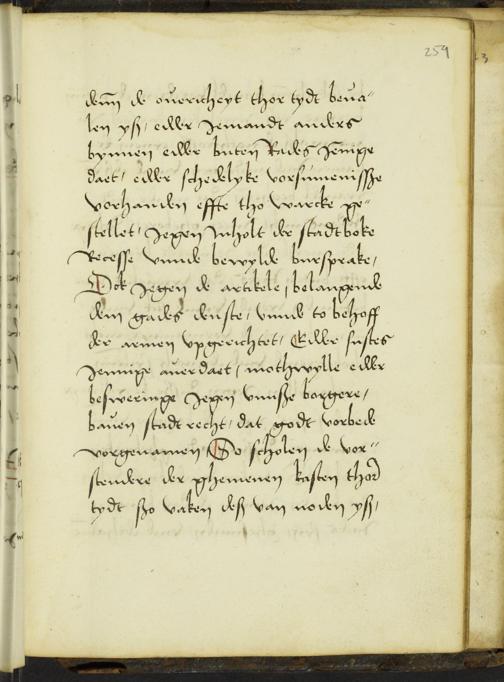 259
denn de ouericheyt thor tydt beua-
len ys, edder Jemandt anders
bynnen edder buten Rades Jenige
daet, edder schedelyke vorsumenisße
vorhanden effte tho wercke ge-
stellet, Jegen Inholt der stadt boke
Recesse vnnde bewylde bursprake,
Ock Jegen de artikele, belangende
den gades denste, vnnde to behoff
der armen vpgerichtet, Edder sustes
Jennige auerdaet, mothwylle edder
besweringe Jegen vnnße borgere,
bauen stadt recht, dat godt vorbede
vorgenamen, So scholen de vor-
stendere der ghemenen kasten thor
tydt ßo vaken deß van noden yß,